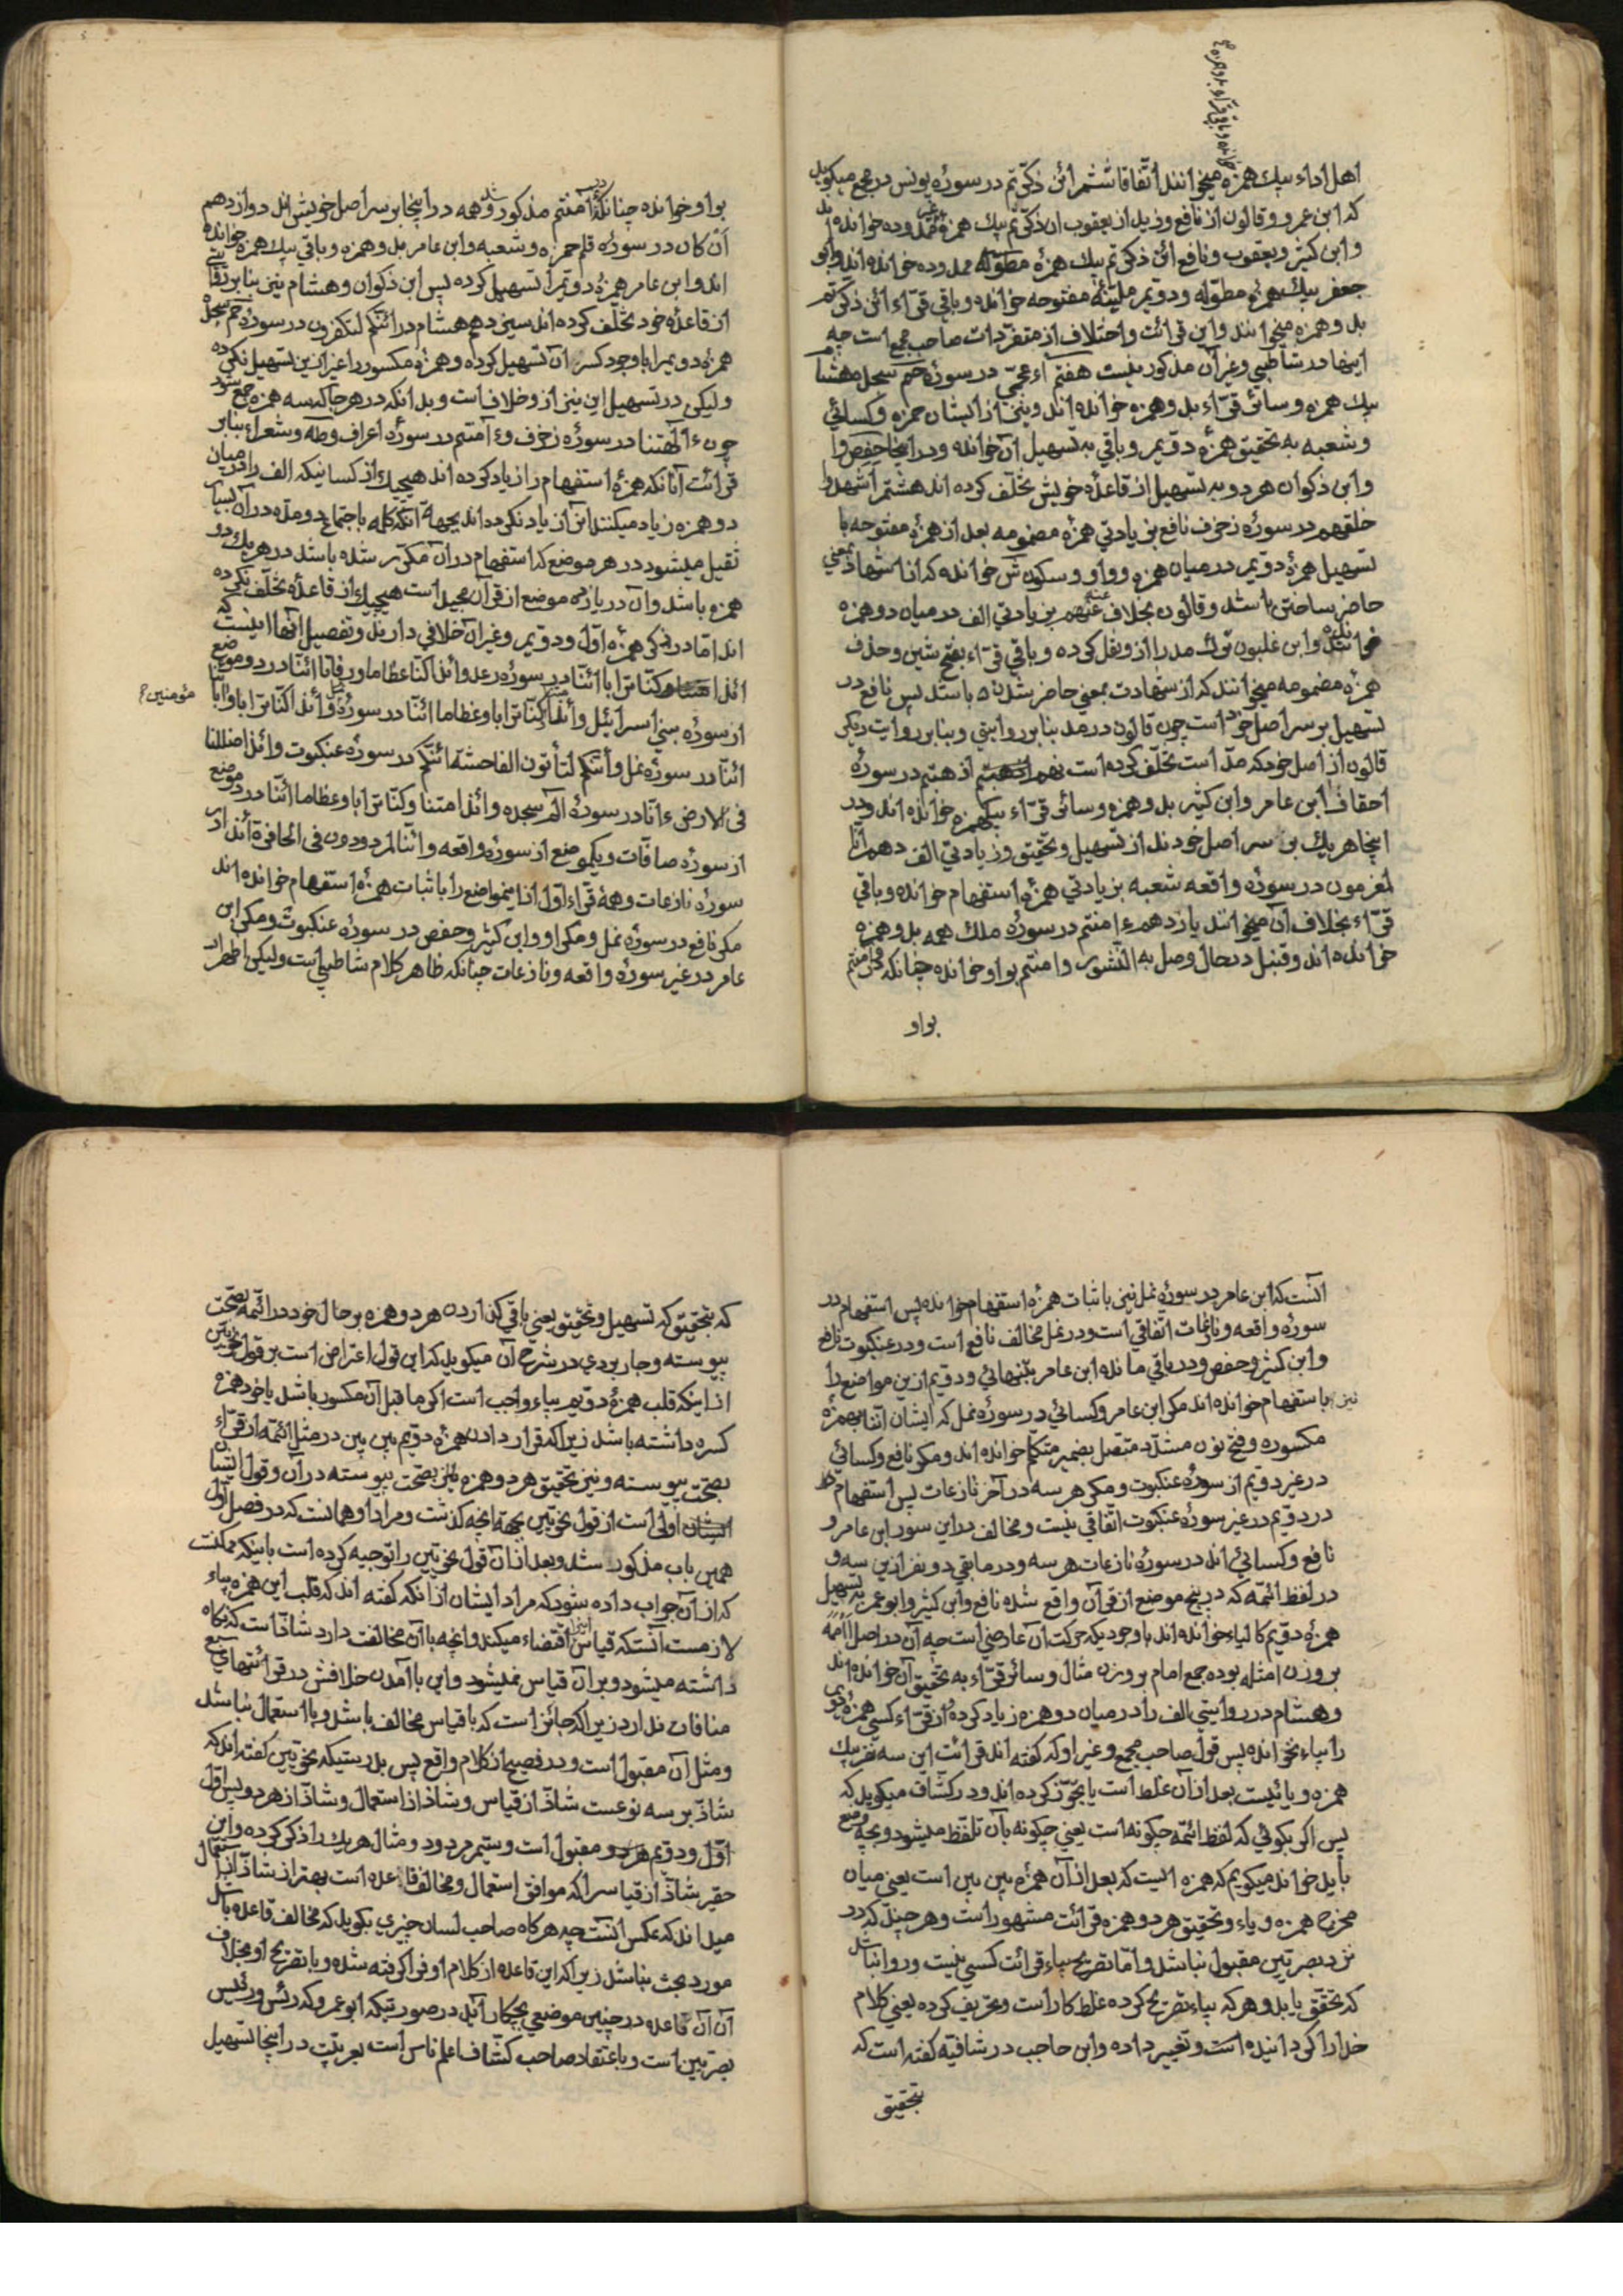 اهل اداء بیك همزه میخوانند اتّفاقا ششم ائن ذکّرتم در سورۀ یونس در مجمع میکوید
که ابن عمرو و قالون از نافع و زید از یعقوب ان ذکّرتم بیك همزۀ ممدوده خوانده اند
و ابن کثیر و یعقوب و نافع ائن ذکرتم بیك همزۀ مطوّله ممدوده خوانده اند و ابو
جعفر بیك همزۀ مطوّله و دویم ملیّنۀ مفتوحه خوانده و باقی قرّاء ائن ذکرتم
بدو همزه میخوانند و این قرائت و اختلاف از متفردات صاحب مجمع است چه
اینها در شاطبی و غیر آن مذکور نیست هفتم ءاعجمیّ در سورۀ حم سجده هشام
بیك همزه و سائر قرّاء بدو همزه خوانده اند و نیز از ایشان حمزه و کسائی
و شعبه به تحقیق همزۀ دویم و باقی به تسهیل آن خوانده و در اینجا حفص را
و ابن ذکوان هر دو به تسهیل از قاعدۀ خویش تخلّف کرده اند هشتم أشهدوا
خلقهم در سورۀ زخرف نافع بزیادتی همزۀ مضمومه بعد از همزۀ مفتوحه با
تسهیل همزۀ دویم در میان همزه و واو و سکون ش خوانده که از اشهاد بمعنی
حاضر ساختن باشد و قالون بخلاف عنه بزیادتی الف در میان دو همزه
خوانده و ابن غلبون ترك مد را از و نقل کرده و باقی قرّاء بفتح شین و حذف
همزۀ مضمومه میخوانند که از شهادت بمعنی حاضر شدن باشد پس نافع در
تسهیل بر سر اصل خود است چون قالون در مد بنابر روایتی و بنابر روایت دیکر
قالون از اصل خود که مدّ است تخلّف کرده است نهم اذهبتم در سورۀ
احقاف ابن عامر و ابن کثیر بدو همزه و سائر قرّاء بیکهمزه خوانده اند و در
اینجا هر یك بر سر اصل خودند از تسهیل و تحقیق و زیادتی الف دهم ائنّا
لمغرمون در سورۀ واقعه شعبه بزیادتی همزۀ استفهام خوانده و باقی
قرّاء بخلاف آن میخوانند یازدهم ءامنتم در سورۀ ملك همه بدو همزه
خوانده اند و قنبل در حال وصل به النشور وامنتم بواو خوانده چنانکه
بواو
بواو خوانده چنانکه در ءامنتم مذکور شد و همه در اینجا بر سر اصل خویش اند دوازدهم
أن کان در سورۀ قلم حمزه و شعبه و ابن عامر بدو همزه و باقی بیك همزه خوانده
اند و ابن عامر همزۀ دویم را تسهیل کرده پس ابن ذکوان و هشام نیز بنابر
از قاعدۀ خود تخلّف کرده اند سیزدهم هشام در ائنّکم لتکفرون در سورۀ حم سجده
همزۀ دویم را با وجود کسر آن تسهیل کرده و همزۀ مکسور را غیر ازین تسهیل نکرده
ولیکن در تسهیل این نیز ازو خلاف است و بدانکه در هر جا که سه همزه جمع شود
چون ءالهتنا در سورۀ زخرف و ءامنتم در سورۀ اعراف و طه و شعراء بنابر
قرائت آنانکه همزۀ استفهام را زیاد کرده اند هیچیك از کسانیکه الف را در میان
دو همزه زیاد میکنند این را زیاد نکرده اند بجهة آنکه کلمه باجتماع دو مدّه در آن بسیار
ثقیل میشود در هر موضع که استفهام در آن مکرّر شده باشد در هر یك دو
همزه باشد و آن در یازده موضع از قرآن مجید است هیچیك از قاعدۀ تخلّف نکرده
اند امّا در ذکر همزۀ اوّل و دویم و غیر آن خلافی دارند و تفصیل آنها اینست که
ائذا کنّا ترابا ائنّا در سورۀ رعد و ائذا کنّا عظاما و رفاتا ائنّا در دو موضع
از سورۀ بنی اسرائیل و أئذا کنّا ترابا و عظاما ائنّا در سورۀ و أئذا کنّا ترابا و اباؤنا
مؤمنین؟
ائنّا در سورۀ نمل و أئنّکم لتأتون الفاحشة ائنّکم در سورۀ عنکبوت و ائذا ضللنا
فی الارض ءانّا در سورۀ الم سجده و ائذا متنا و کنّا ترابا و عظاما ائنّا در دو موضع
از سورۀ صافّات و یکموضع از سورۀ واقعه و ائنّا لمردودون فی الحافرة أئذا از
سورۀ نازعات و همۀ قرّاء اوّل از این مواضع را با ثبات همزۀ استفهام خوانده اند
مکر نافع در سورۀ نمل و مکر او و ابن کثیر و حفص در سورۀ عنکبوت و مکر ابن
عامر در غیر سورۀ واقعه و نازعات چنانکه ظاهر کلام شاطبی است ولیکن اظهر
آنست که ابن عامر در سورۀ نمل نیز با ثبات همزۀ استفهام خوانده پس استفهام در
سورۀ واقعه و نازعات اتفاقی است و در نمل مخالف نافع است و در عنکبوت نافع
و ابن کثیر و حفص و در باقی مانده ابن عامر بتنهائی و دویم ازین مواضع را
نیز باستفهام خوانده اند مکر ابن عامر و کسائی در سورۀ نمل که ایشان اننا بهمزۀ
مکسوره و فتح نون مشدّد متصل بضمیر متکلم خوانده اند و مکر نافع و کسائی
در غیر دویم از سورۀ عنکبوت و مکر هر سه در آخر نازعات پس استفهام
در دویم در غیر سورۀ عنکبوت اتفاقی نیست و مخالف در این سور ابن عامر و
نافع و کسائی اند در سورۀ نازعات هر سه و در مابقی دو نفر ازین سه و
در لفظ ائمّه که در پنج موضع از قرآن واقع شده نافع و ابن کثیر و ابو عمرو به تسهیل
همزۀ دویم کالیاء خوانده اند با وجود یکه حرکت آن عارضی است چه آن در اصل أأممة
بر وزن امثله بوده جمع امام بر وزن مثال و سائر قرّاء به تحقیق آن خوانده اند
و هشام در روایتی الف را در میان دو همزه زیاد کرده از قرّاء کسی همزۀ دویم
را بیاء نخوانده پس قول صاحب مجمع و غیر او که کفته اند قرائت این سه نفر بیك
همزه و یائیست بعد از آن غلط است یا تجوّز کرده اند و در کشّاف میکوید که
پس اکر بکوئی که لفظ ائمّه چکونه است یعنی چکونه بآن تلفّظ میشود و بچه وضع
باید خواند میکویم که همزه ایست که بعد از آن همزۀ بین بین است یعنی میان
مخرج همزه و یاء و تحقیق هر دو همزه قرائت مشهور است و هر چند که در
نزد بصریّین مقبول نباشد و امّا تصریح بیاء قرائت کسی نیست و روا نباشد
که تحقق یابد و هر که بیاء تصریح کرده غلط کار است و تحریف کرده یعنی کلام
خدا را کردانیده است و تغییر داده و ابن حاجب در شافیه کفته است که
بتحقیق
که بتحقیق که تسهیل و تحقیق یعنی باقی کذاردن هر دو همزه بر حال خود در ائمّه بصحّت
پیوسته و جاربردی در شرح آن میکوید که این قول اعتراض است بر قول نحویّین
از اینکه قلب همزۀ دویم بیاء واجب است اکر ماقبل آن مکسور باشد یا خود همزه
کسره داشته باشد زیرا که قرار دادن همزۀ دویم بین بین در مثل ائمّه از قرّاء
بصحّت پیوسته و نیز تحقیق هر دو همزه بصحّت پیوسته در آن و قول ایشان
اولی است از قول نحویّین بجهة آنچه کذشت و مراد او همانست که در فصل اوّل
همین باب مذکور شد و بعد از آن قول نحویّین را توجیه کرده است باینکه ممکنست
که از آن جواب داده شود که مراد ایشان از آنکه کفته اند که قلب این همزه بیاء
لازمست آنستکه قیاس اینرا اقتضاء میکند و آنچه با آن مخالفت دارد شاذّ است که نکاه
داشته میشود و بر آن قیاس نمیشود و این با آمدن خلافش در قرائتهای سبع
منافات ندارد زیرا که جائز است که با قیاس مخالف باشد و با استعمال نباشد
و مثل آن مقبول است و در فصیح از کلام واقع پس بدرستیکه نحویّین کفته اند که
شاذّ بر سه نوعست شاذّ از قیاس و شاذّ از استعمال و شاذّ از هر دو پس اوّل
اوّل و دویم مقبول است و سیّم مردود و مثال هر یك را ذکر کرده و این
حقیر شاذّ از قیاس را که موافق استعمال و مخالف قاعده است بهتر از شاذّ استعمال
میداند که عکس آنست چه هر کاه صاحب لسان چیزی بکوید که مخالف قاعده باشد
مورد بحث نباشد زیرا که این قاعده از کلام او فرا کرفته شده و با تصریح او بخلاف
آن آن قاعده در چنین موضعی بچکار آید در صورتیکه ابو عمرو که رئس و رئیس
بصریّین است و باعتقاد صاحب کشّاف اعلم ناس است بعربیّت در اینجا تسهیل